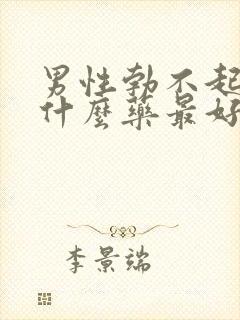 男性勃不起
什麼藥最好
李景端